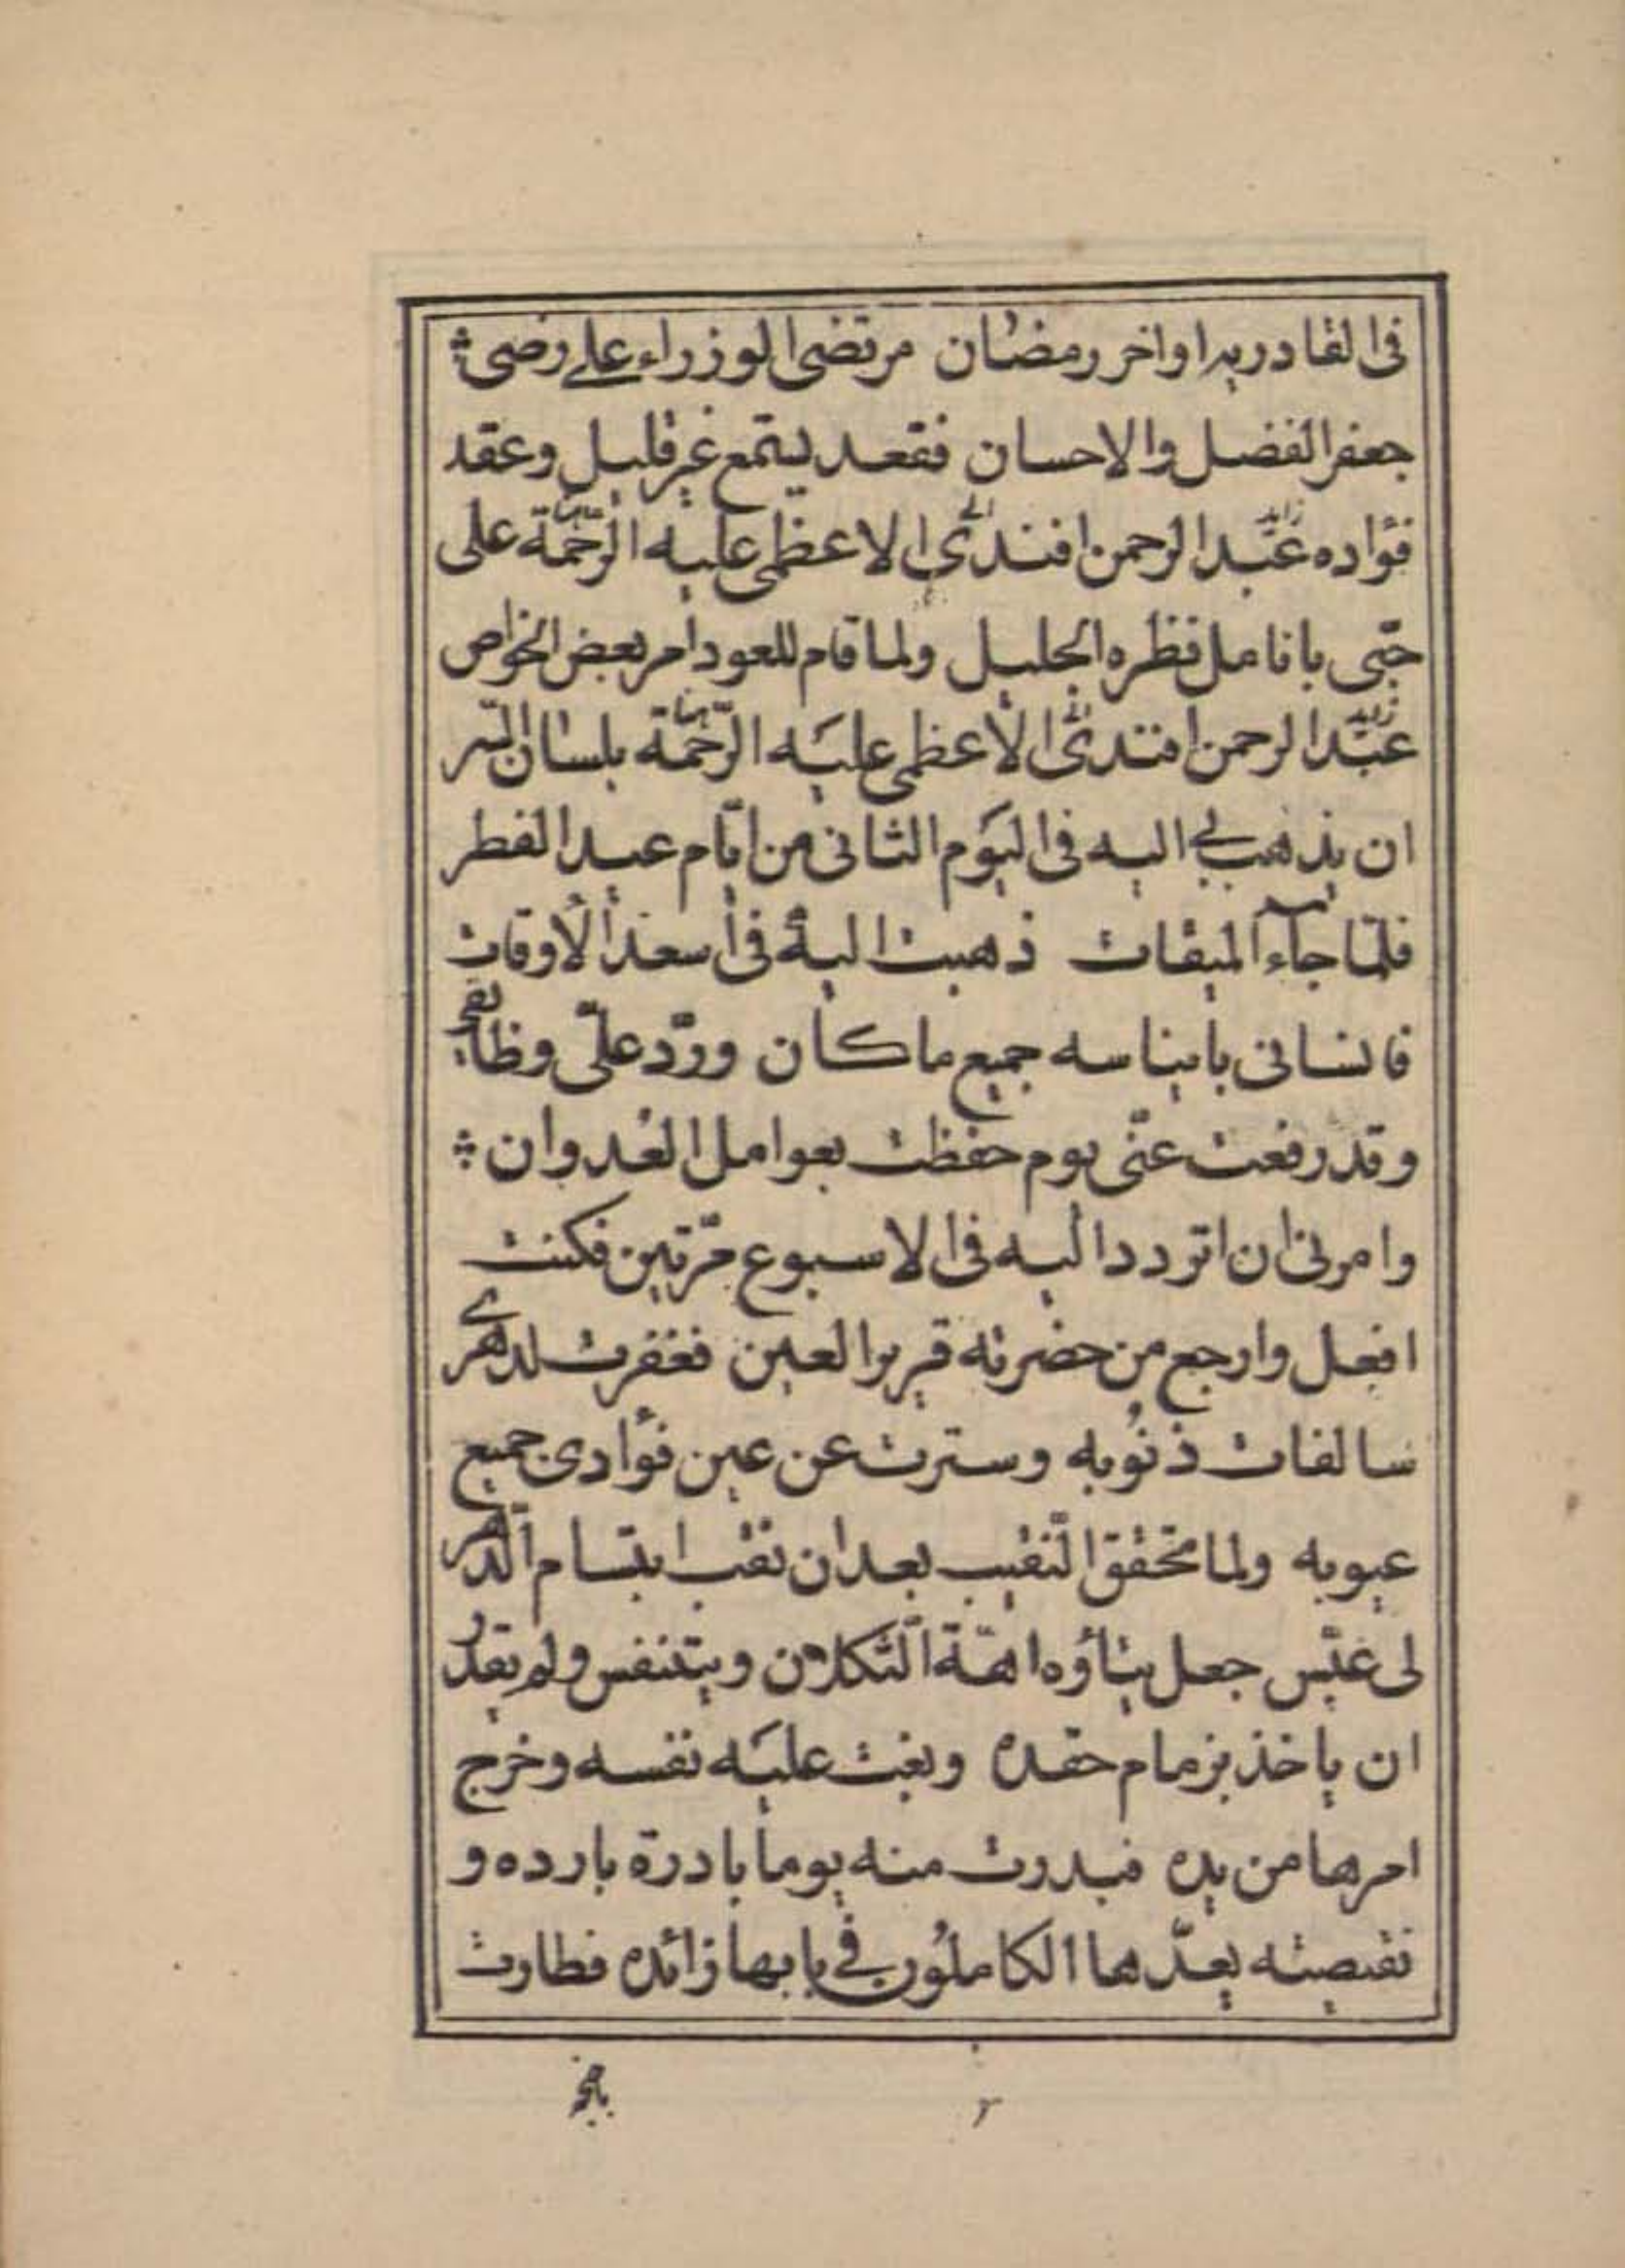 فى القادريه اواخر رمضان مرتضى الوزراء على رضى
جعفر الفضل والاحسان فقعد يستمع غير قليل وعقد
فؤاده عبد الرحمن افندى الاعظمى عليه الرحمة على
حبى بانامل نظره الجليل ولما قام للعود امر بعض الخواص
عبد الرحمن افندى الاعظمى عليه الرحمة بلسان السر
ان يذهب بى اليه فى اليوم الثانى من ايام عيد الفطر
فلما جاء الميقات ذهبت اليه فى اسعد الاوقات
فانسانى بايناسه جميع ما كان ورد على وظائفى
وقد رفعت عنى يوم خفظت بعوامل العدوان
وامرنى ان اتردد اليه فى الاسبوع مرتين فكنت
افعل وارجع من حضرته قرير العين فغفرت لدهرى
سالفات ذنوبه وسترت عن عين فؤادى جميع
عيوبه ولما تحقق النقيب بعد ان نقب ابتسام الدهر
لى عبس جعل يتأوه اهة الثكلان ويتنفس ولم يقدر
ان ياخذ بزمام حقده وبغت عليه نفسه وخرج
امرها من يده فبدرت منه يوما بادرة بارده و
نقيصته يعدها الكاملون فى بابها زائده فطارت
٢